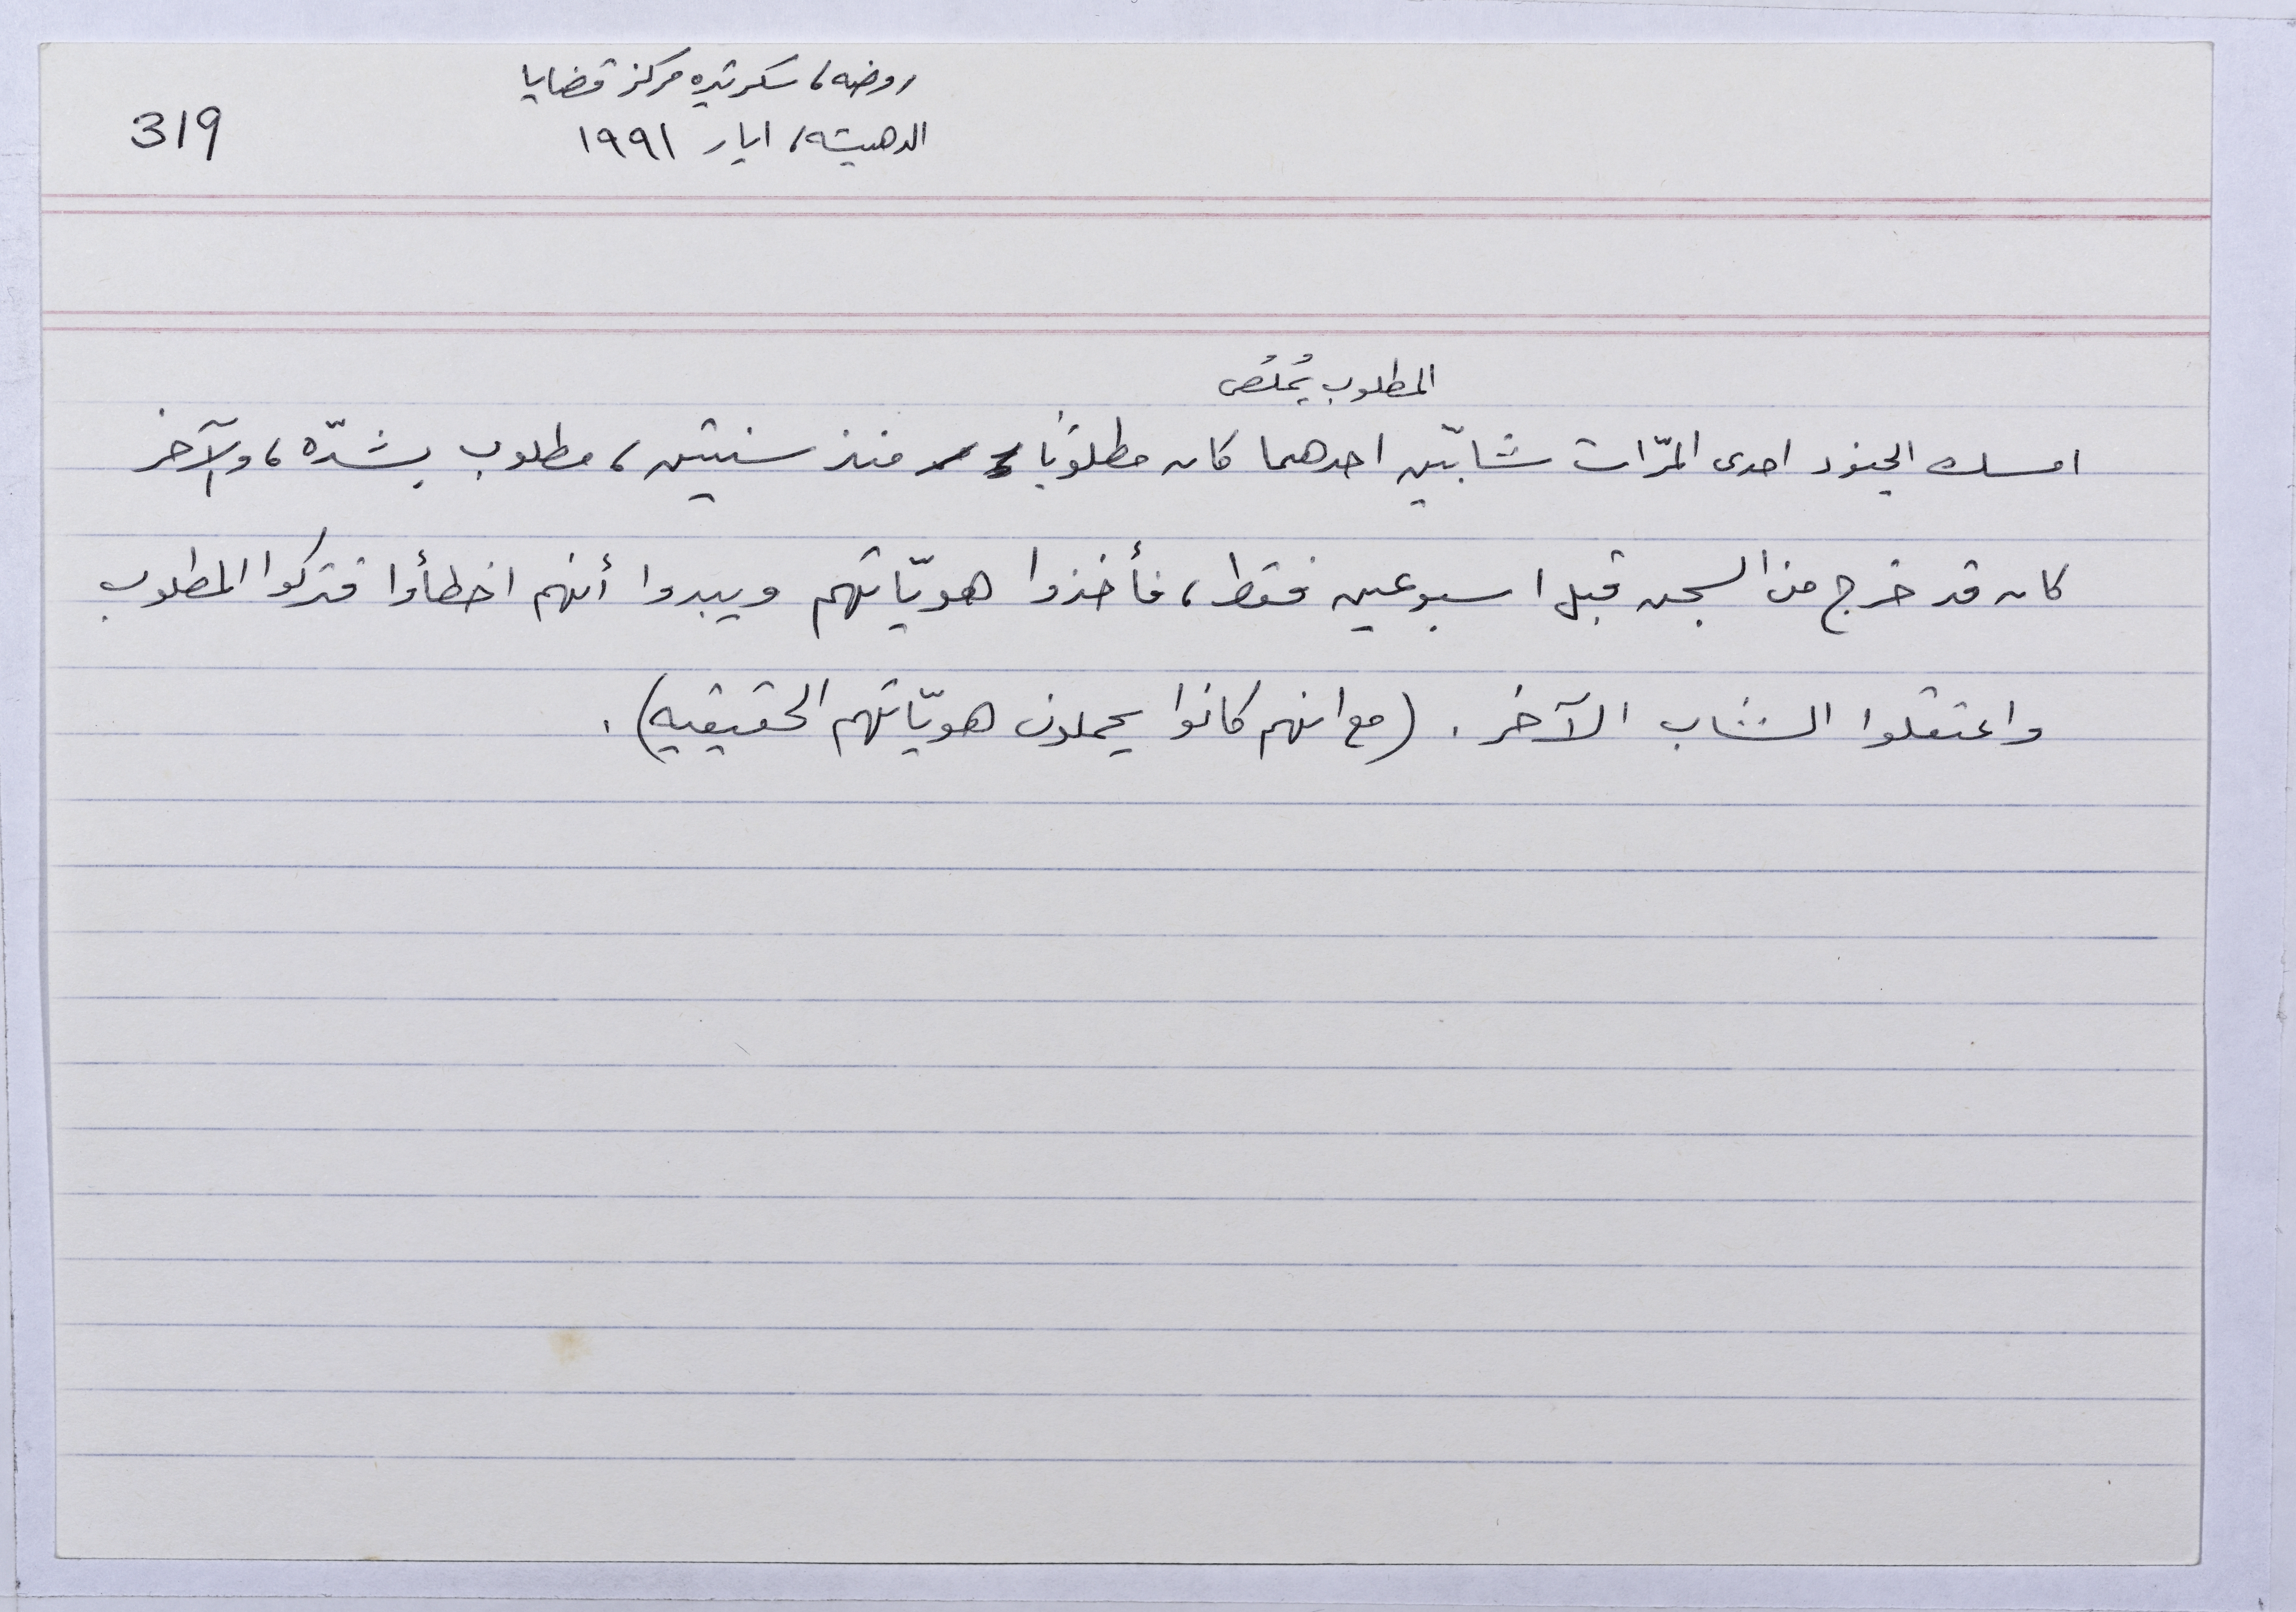 روضه، سكرتيره مركز قضايا
الدهيشه، ايار ١٩٩١
319
المطلوب يُملُص
امسك الجنود احدى المرّات شابّين احدهما كان مطلوبًا منذ سنتين، مطلوب بشدّه، والآخر
كان قد خرج من السجن قبل اسبوعين فقط، فأخذوا هويّاتهم ويبدوا أنهم اخطأوا فتركوا المطلوب
واعتقلوا الشاب الآخر. (مع انهم كانوا يحملون هويّاتهم الحقيقيه).